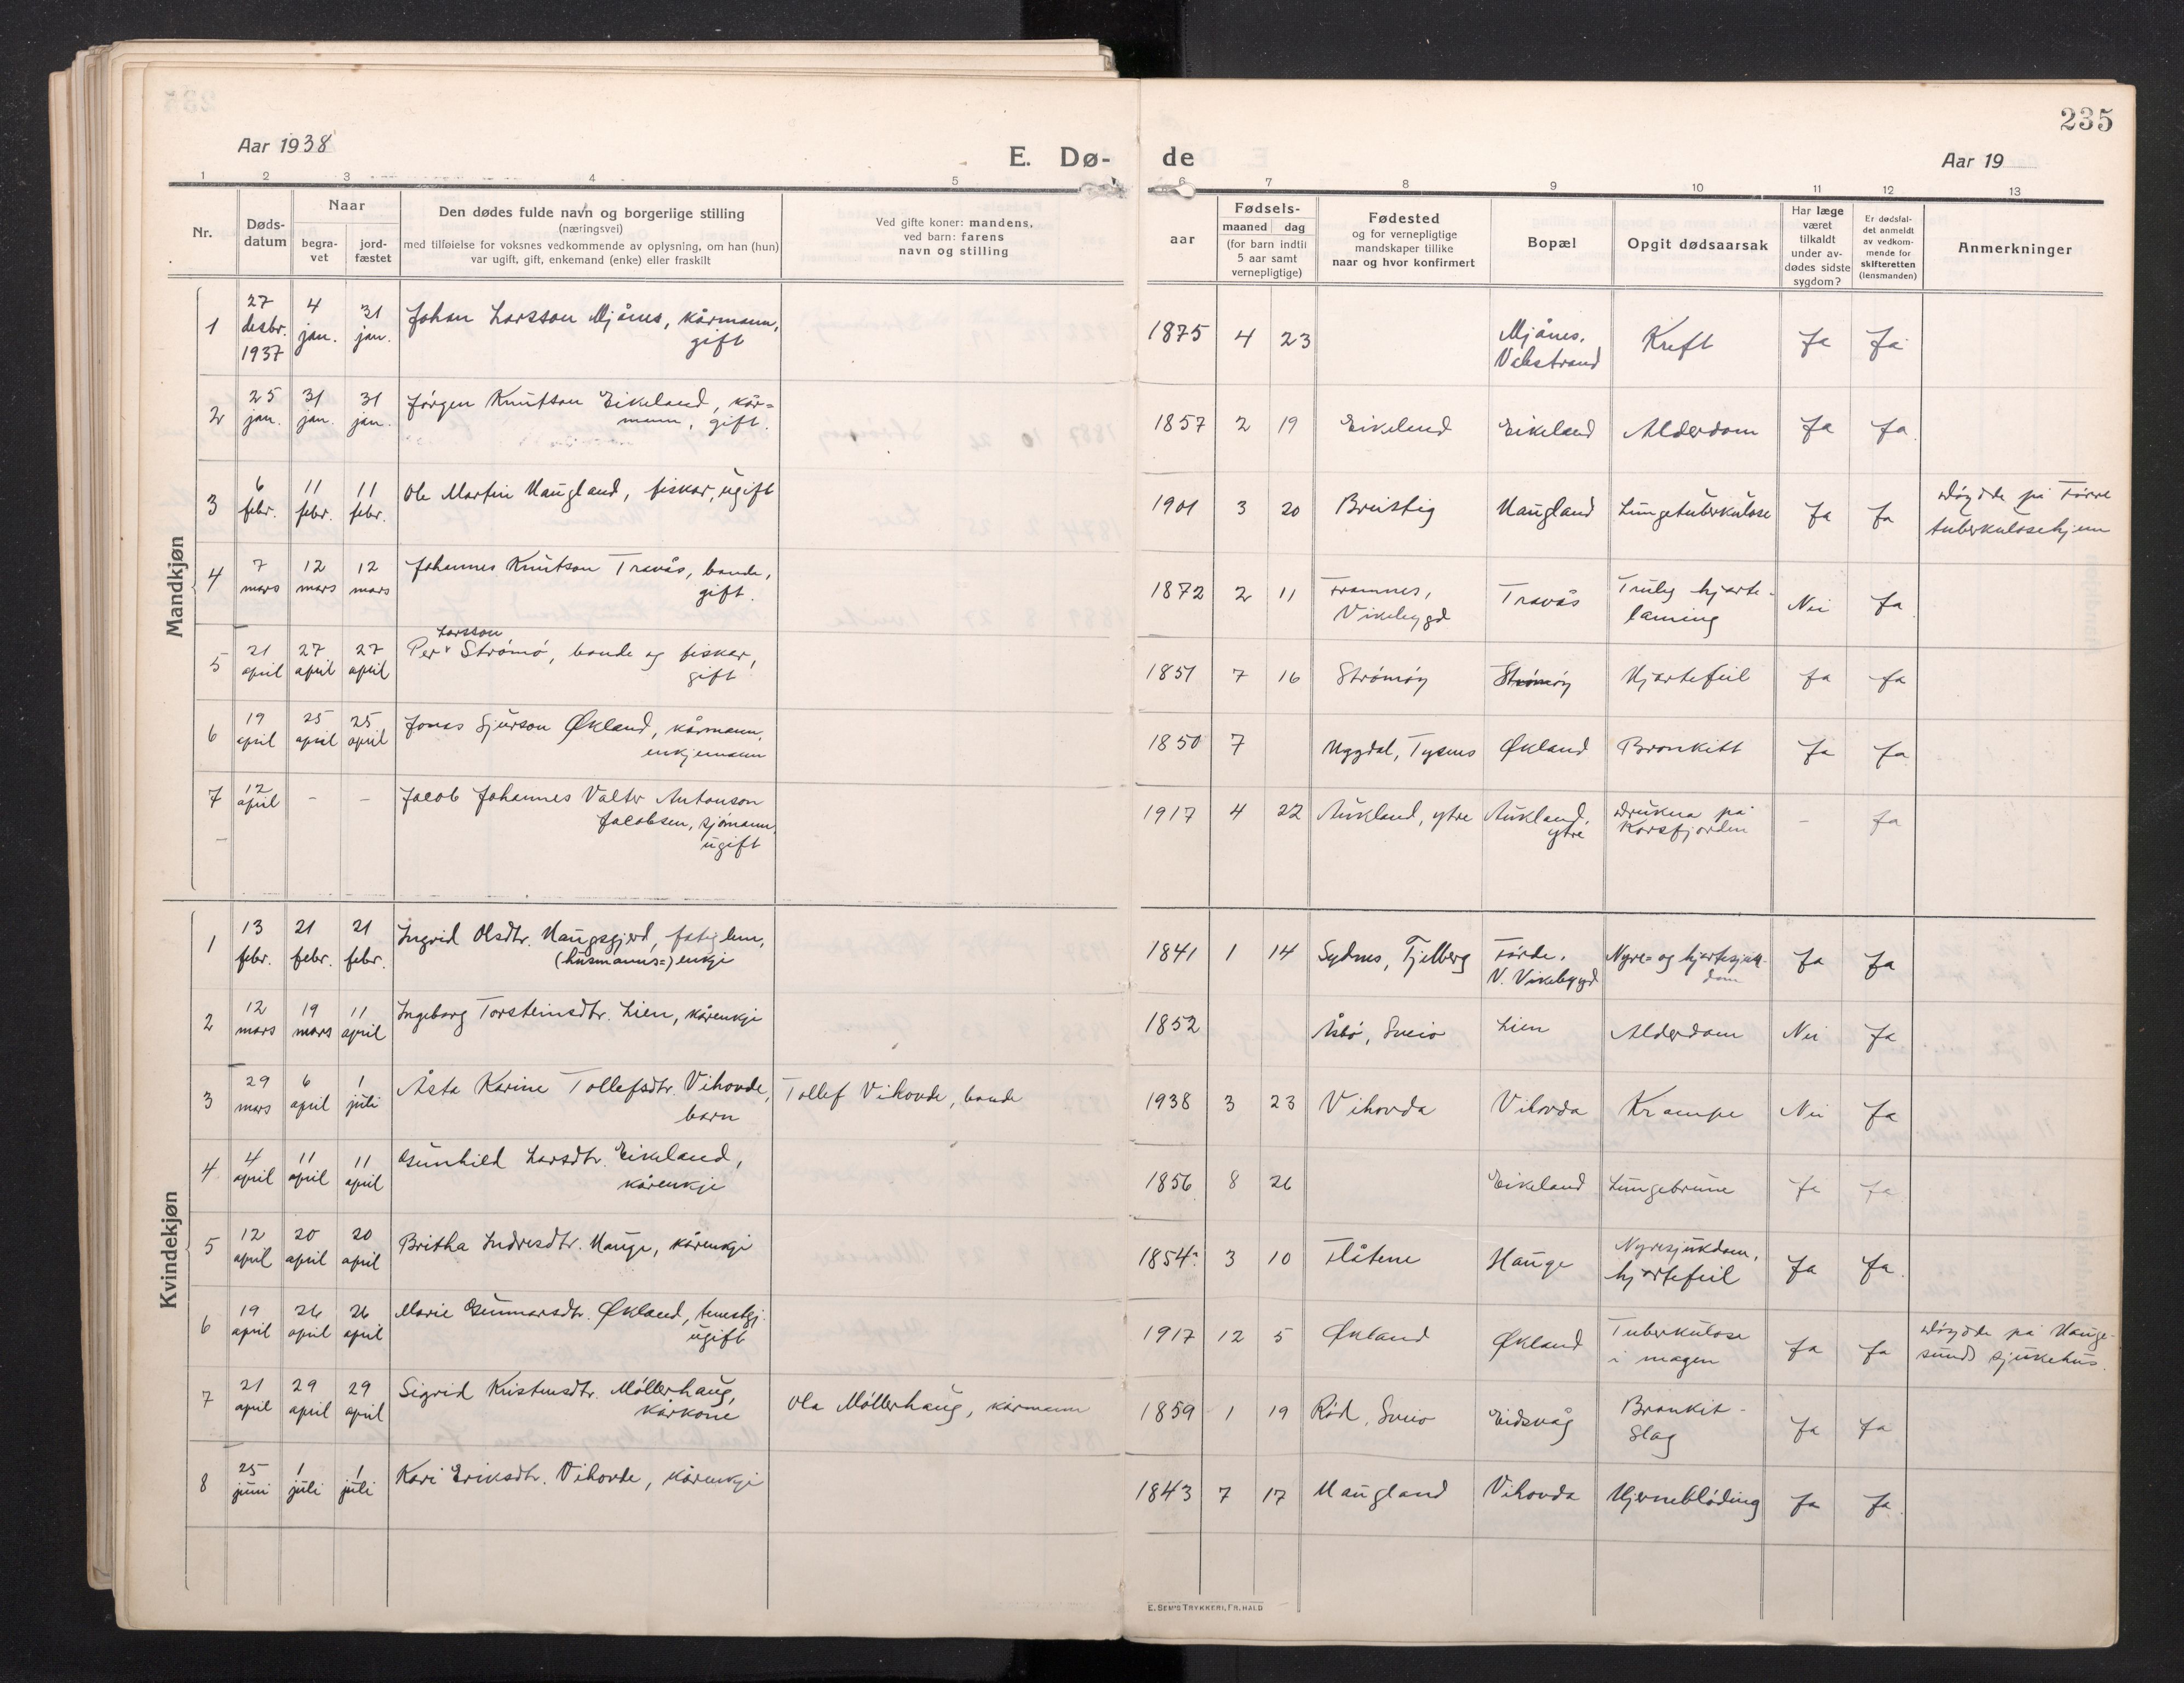 235
Aar 1938
E. Dø- de
Aar 19
1 2 3 4 5 6 7 8 9 10 11 12 13
Nr.
Døds-
datum
Naar
begra-
vet
jord-
fæstet
Den dødes fulde navn og borgerlige stilling
(næringsvei)
med tilføielse for voksnes vedkommende av oplysning, om han (hun)
var ugift, gift, enkemand (enke) eller fraskilt
Ved gifte koner: mandens,
ved barn: farens
navn og stilling
Fødsels-
aar
maaned dag
(for barn indtil
5 aar samt
vernepligtige)
Fødested
og for vernepligtige
mandskaper tillike
naar og hvor konfirmert
Bopæl
Opgit dødsaarsak
Har læge
været
tilkaldt
under av-
dødes sidste
sygdom?
Er dødsfal-
det anmeldt
av vedkom-
mende for
skifteretten
(lensmanden)
Anmerkninger
Mandkjøn
1 27 desbr. 1937 4 jan. 31 jan. Johan Larsson Mjånes, kårmann,
gift
1875 4 23 Mjånes,
Valestrand Kreft Ja Ja
2 25 jan. 31 jan. 31 jan. Jørgen Knutson Eikeland, kår=
mann, gift.
1857 2 19 Eikeland Eikeland Alderdom Ja Ja.
3 6 febr. 11 febr. 11 febr. Ole Martin Haugland, fiskar, ugift
1901 3 20 Breistig Haugland Lungetuberkulose Ja Ja Døydde på Førre
tuberkulosehjem
4 7 mars 12 mars 12 mars Johannes Knutson Travås, bonde,
gift.
1872 2 11 Framnes,
Vikebygd Travås Truleg hjarte-
laming Nei Ja
5 21 april 27 april 27 april Larsson
Per Strømø, bonde og fiskar,
gift
1851 7 16 Strømøy Strømøy Hjartefeil Ja Ja
6 19 april 25 april 25 april Jonas Sjurson Økland, kårmann,
enkjemann
1850 7 Uggdal, Tysnes Økland Bronkitt Ja Ja
7 12 april - - Jacob Johannes Valter Antonson
Jacobsen, sjømann,
ugift
1917 4 22 Aukland, ytre Aukland,
ytre Drukna på
Korsfjorden - Ja
Kvindekjøn
1 13 febr. 21 febr. 21 febr. Ingrid Olsdtr. Haugsgjerd, fatiglem,
(husmanns=) enkje
1841 1 14 Sydnes, Fjelberg Førde.
V. Vikebygd Nyre= og hjartesjuk-
dom Ja Ja
2 12 mars 19 mars 11 april Ingeborg Torsteinsdtr. Lien, kårenkje
1852 Åsbø, Sveio Lien Alderdom Nei Ja
3 29 mars 6 april 1 juli Åsta Karine Tollefsdtr. Vihovde,
barn
Tollef Vihovde, bonde
1938 3 23 Vihovda Vihovda Krampe Nei Ja
4 4 april 11 april 11 april Gunhild Larsdtr. Eikeland,
kårenkje
1856 8 26 Eikeland Lungebrune Ja Ja
5 12 april 20 april 20 april Britha Indresdtr. Hauge, kårenkje
1854 3 10 Flåtene Hauge Nyresjukdom,
hjartefeil Ja Ja.
6 19 april 26 april 26 april Marie Gunnarsdtr. Økland, tenestgj.
ugift
1917 12 5 Økland Økland Tuberkulose
i magen Ja Ja Døydde på Hauge-
sunds sjukehus.
7 21 april 29 april 29 april Sigrid Kristensdtr. Møllerhaug,
kårkone
Ola Møllerhaug, kårmann
1859 1 19 Rød, Sveio Eidsvåg Bronkit-
Slag Ja Ja
8 25 juni 1 juli 1 juli Kari Eriksdtr. Vihovde, kårenkje
1843 7 17 Haugland Vihovda Hjerneblöding Ja Ja
E. SEM'S TRYKKERI, FR.HALD